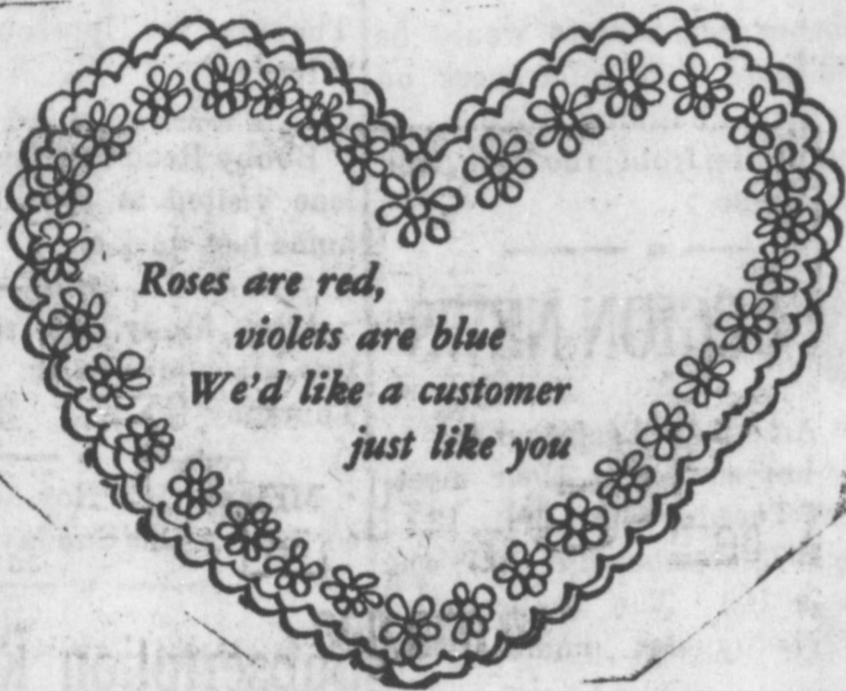 Roses are red,
violets are blue
We'd like a customer
just like you